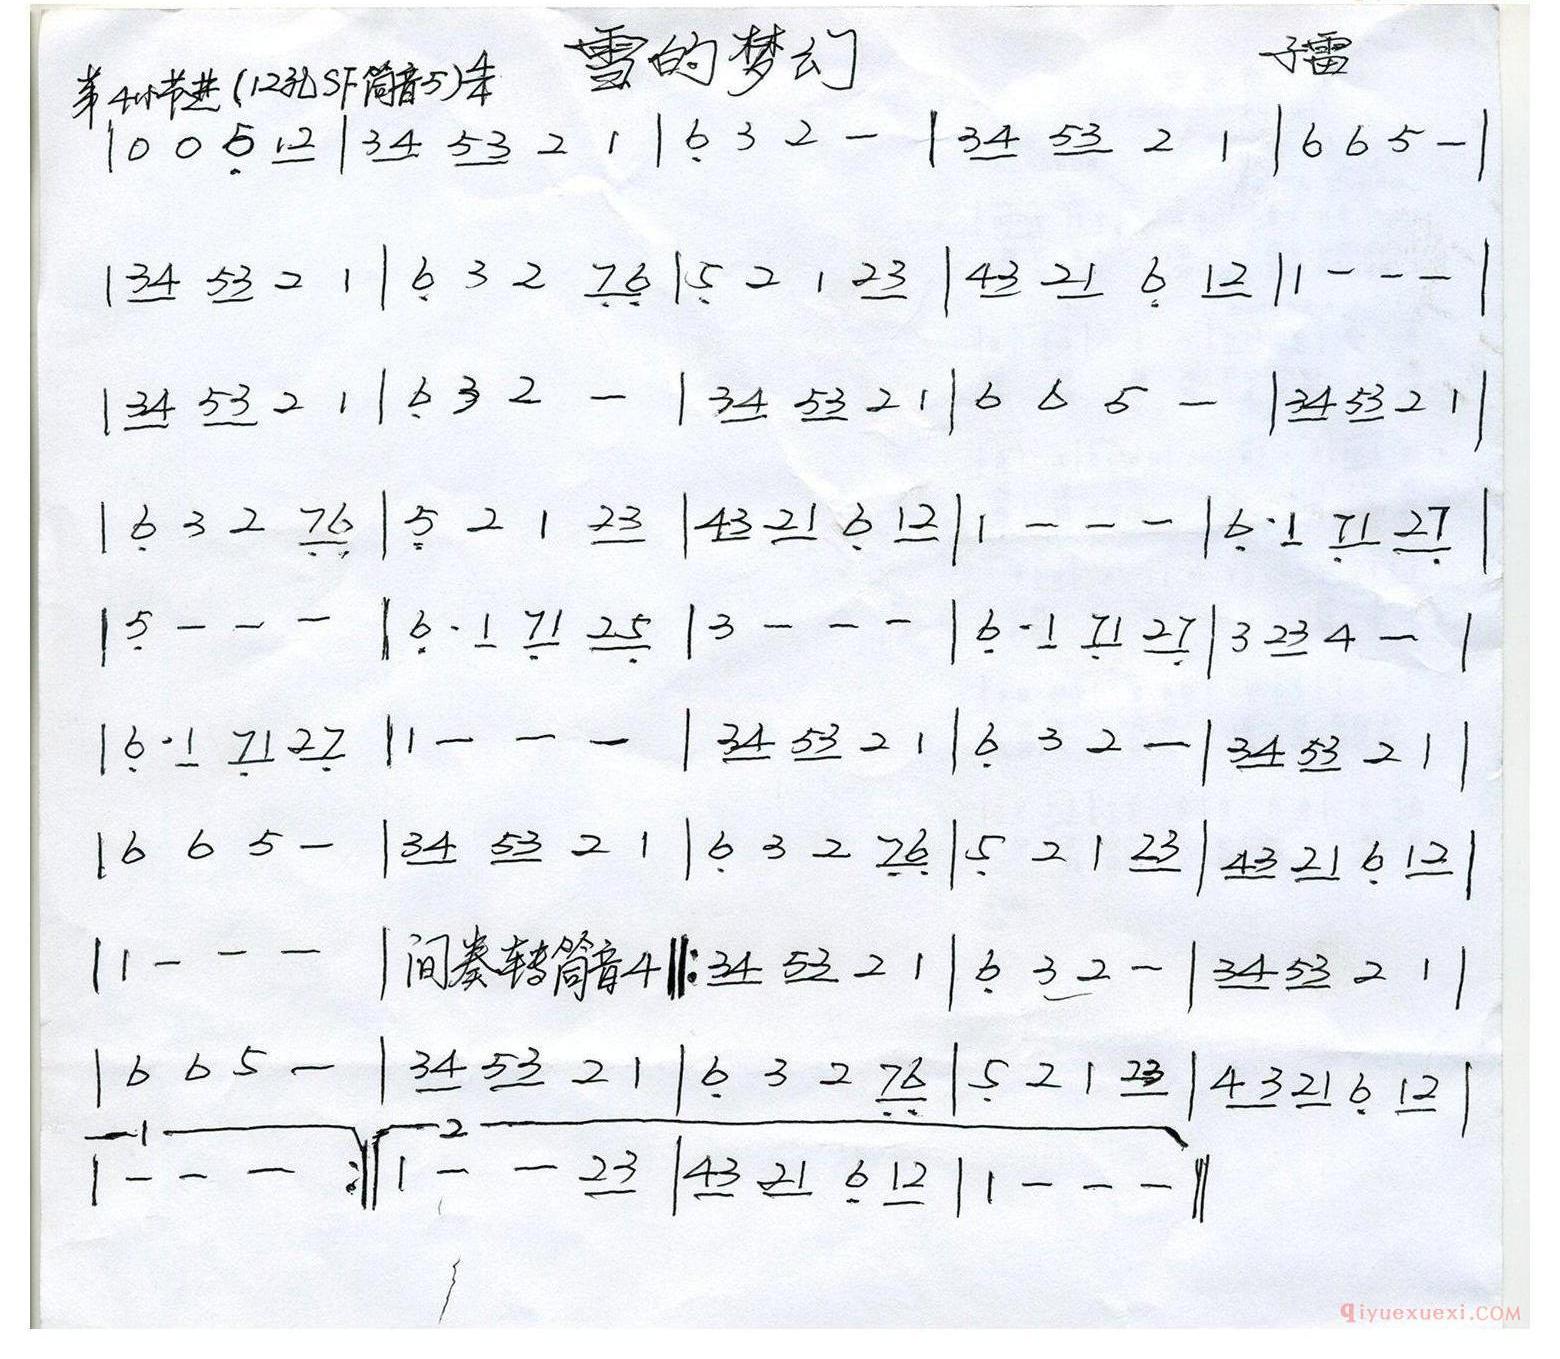 雪的梦幻
子雷
第4小节进(12孔SF筒音5)4/4
|0 0 6 12|34 53 2 1|6 3 2 —|34 53 2 1|6 6 5 —|
|34 53 2 1|6 3 2 76|5 2 1 23|43 21 6 12|1 - - -|
|34 53 2 1|6 3 2 —|34 53 2 1|6 6 5 —|34 53 2 1|
|6 3 2 76|5 2 1 23|43 21 6 12|1 - - -|6·1 71 27|
|5 - - -‖6·1 71 25|3 - - -|6·1 71 27|3 23 4 —|
|6·1 71 27|1 - - -|34 53 2 1|6 3 2 —|34 53 2 1|
|6 6 5 —|34 53 2 1|6 3 2 76|5 2 1 23|43 21 6 12|
|1 - - -|间奏转筒音4‖:34 53 2 1|6 3 2 —|34 53 2 1|
|6 6 5 —|34 53 2 1|6 3 2 76|5 2 1 23|43 21 6 12|
1 2
|1 - - -:‖1 - - 23|43 21 6 12|1 - - -‖
qiyuexuexi.COM